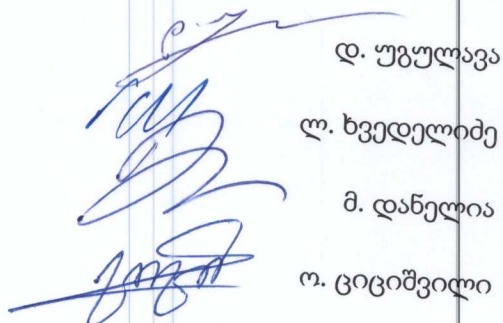 დ. უგულავა
ლ. ხვედელიძე
მ. დანელია
ო. ციციშვილი